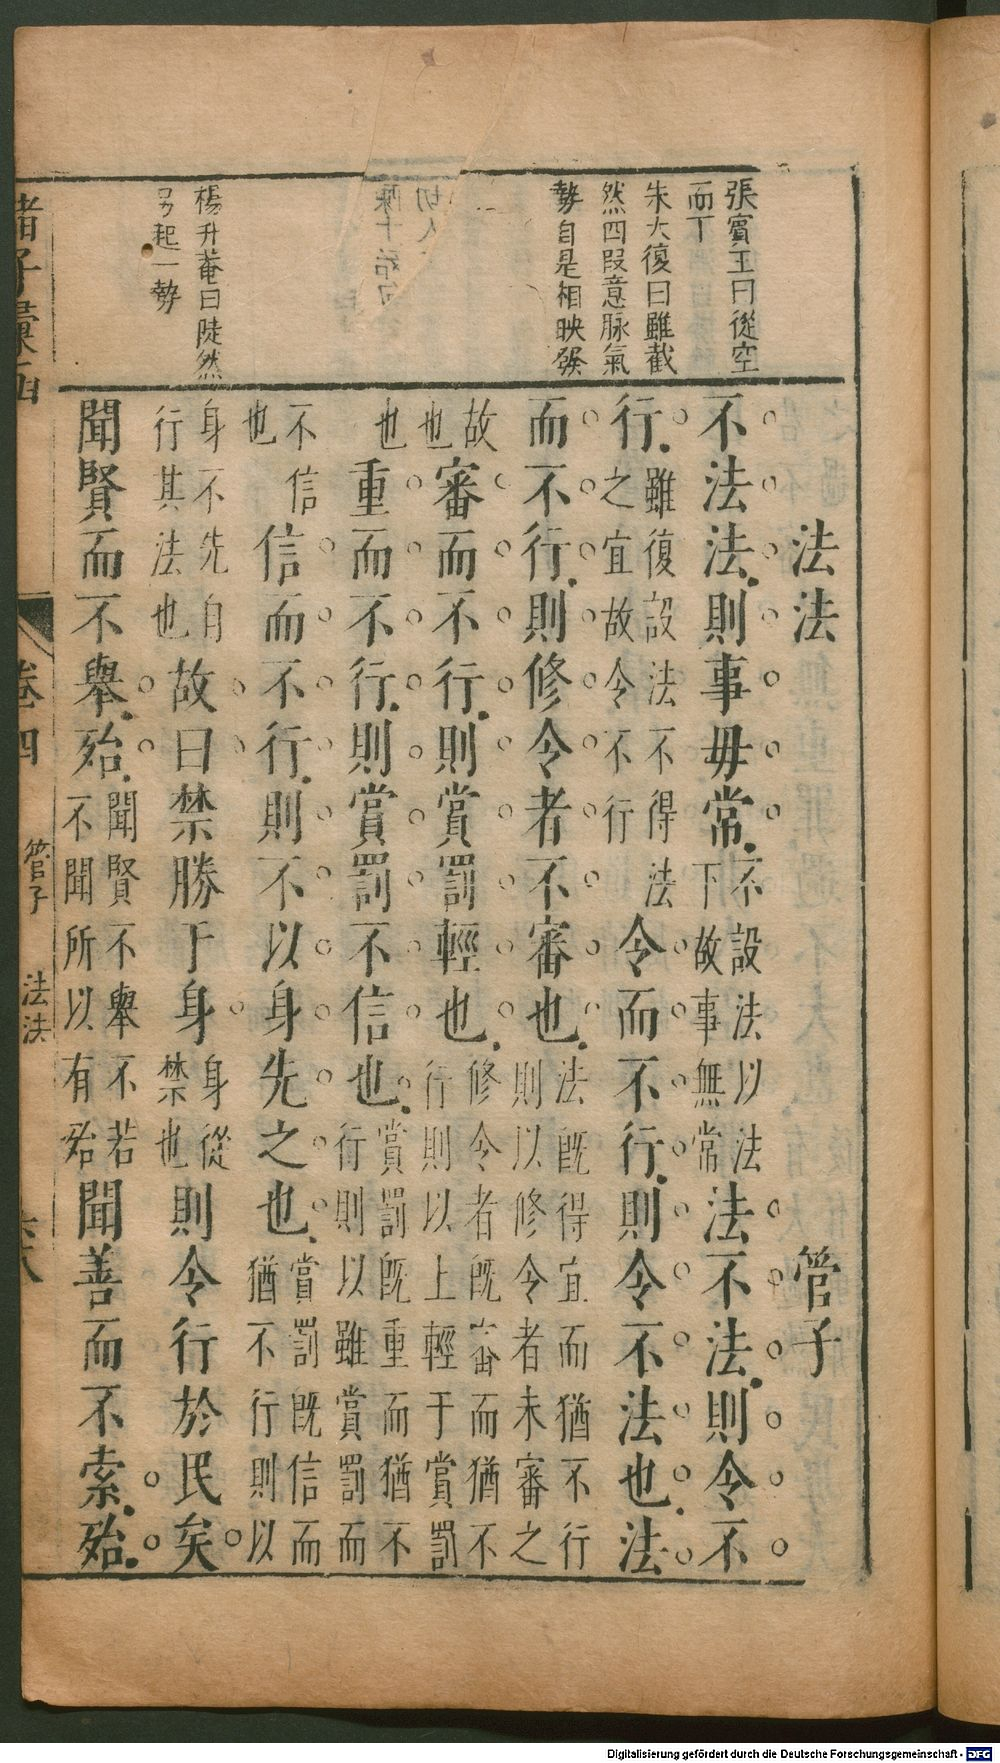 張賓王曰從空
而下
朱大復曰雖截
然四段意脉氣
勢自是相映發
楊升菴曰陡然
另起一勢
法法 管子
不法法則事毋常不設法以法下故事無常法不法則令不
行雖復設法不得法之宜故令不行令而不行則令不法也法
而不行則修令者不審也法旣得宜而猶不行則以修令者未審之
故也審而不行則賞罰輕也修令者旣審而猶不行則以上輕于賞罰
也重而不行則賞罰不信也賞罰旣重而猶不行則以雖賞罰而
不信也信而不行則不以身先之也賞罰旣信而猶不行則以
身不先自行其法也故曰禁勝于身身從禁也則令行於民矣
聞賢而不舉殆聞賢不舉不若不聞所以有殆聞善而不索殆
諸子彙函 卷四 管子 法法
Digitalisierung gefördert durch die Deutsche Forschungsgemeinschaft - DFG